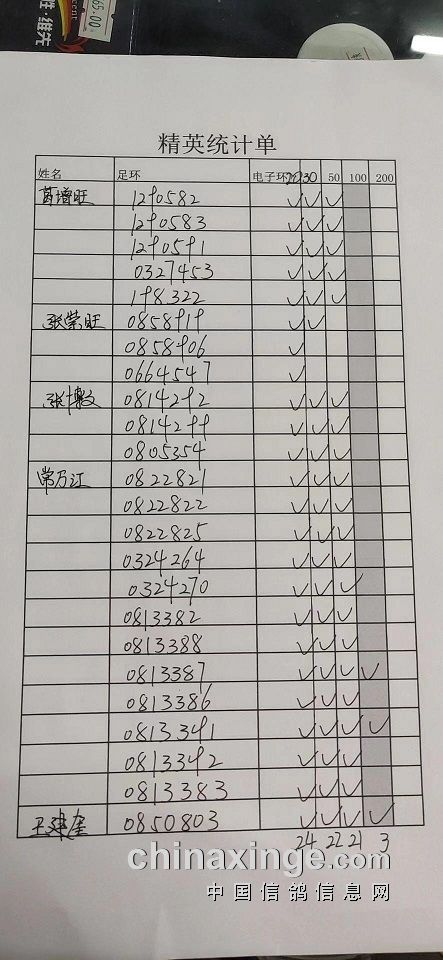 65.00
精英统计单
姓名 足环 电子环 20 30 50 100 200
苗增旺 1290582 ✓ ✓ ✓
1290583 ✓ ✓ ✓
1290591 ✓ ✓ ✓
0327453 ✓ ✓ ✓
198322 ✓ ✓ ✓
张荣旺 0858919 ✓ ✓
0858906 ✓
0664547 ✓
0814292 ✓ ✓ ✓
0814299 ✓ ✓ ✓
0805354 ✓ ✓ ✓
常万江 0822821 ✓ ✓ ✓
0822822 ✓ ✓ ✓
0822825 ✓ ✓ ✓
0324264 ✓ ✓ ✓
0324270 ✓ ✓ ✓
0813382 ✓ ✓ ✓
0813388 ✓ ✓ ✓
0813387 ✓ ✓ ✓ ✓
0813386 ✓ ✓ ✓
0813391 ✓ ✓ ✓ ✓
0813392 ✓ ✓ ✓
0813383 ✓ ✓ ✓
王建奎 0850803 ✓ ✓ ✓ ✓
24 22 21 3
chinaxinge.com
中国信鸽信息网